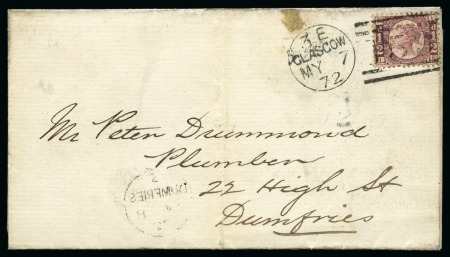 3 E
GLASGOW
MY 7
72
Mr Peter Drummond
Plumber
22 High St
Dumfries
DUMFRIES